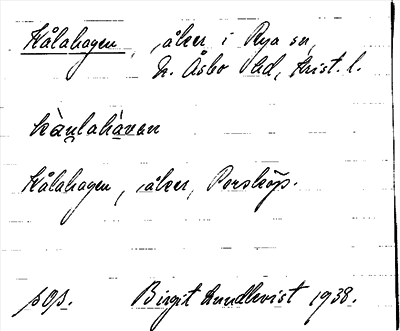 Kålahagen, åker i Rya sn,
N. Åsbo hd, Krist. l.
Kålahagen, åker, Porsköp.
sOs. Birgit Lundkvist 1938.